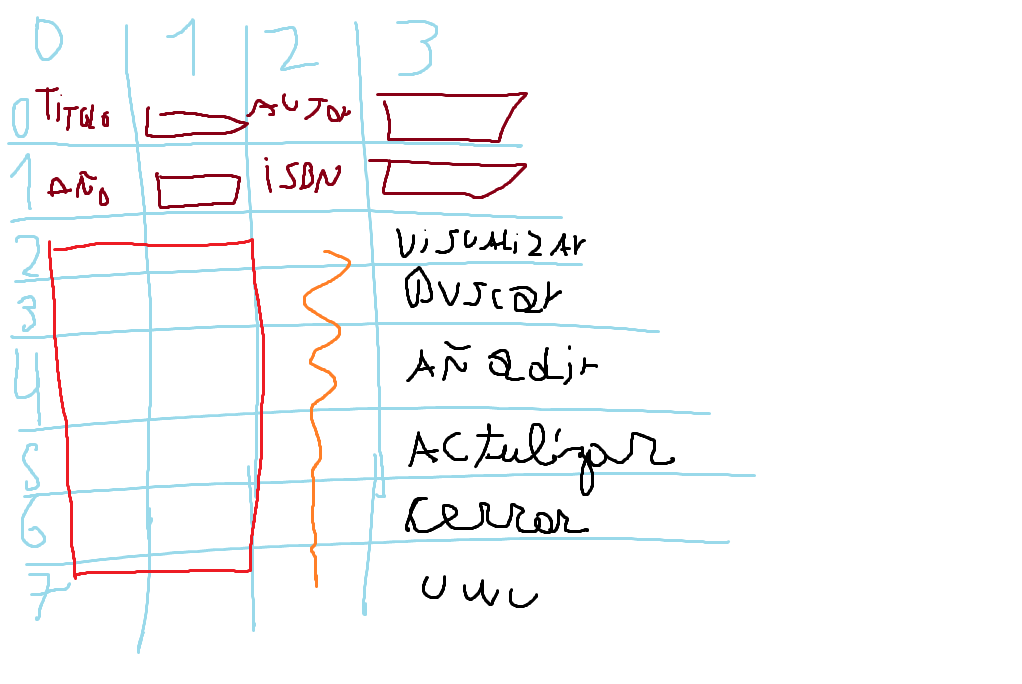 0 1 2 3
0 TiTULO AUTOR
1 AÑO iSBN
2 ViSUALIZAR
3 BUSCAR
4 AÑadir
5 ACtulizar
6 Cerrar
7 UWU